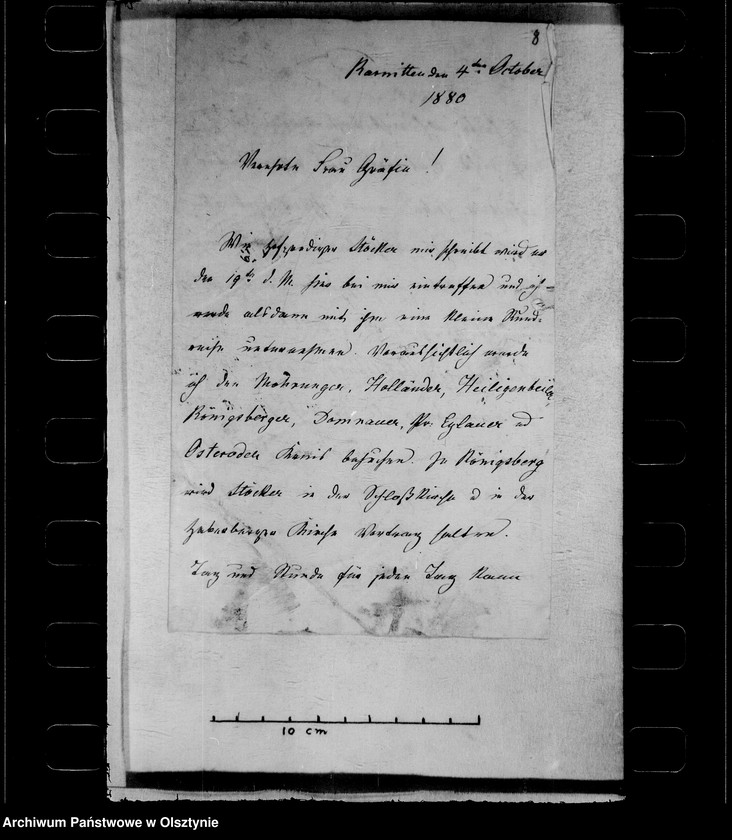 8
Karnitten den 4ten October
1880
Verehrte Frau Gräfin!
Wie Hofprediger Stöcker mir schreibt wird er
den 19ten d. M. hier bei mir eintreffen und ich
werde alsdann mit ihm eine kleine Rund-
reise unternehmen. Voraussichtlich werde
ich den Mohrunger, Holländer, Heiligenbeiler,
Königsberger, Domnauer, Pr. Eylauer und
Osteroder Kreis besuchen. In Königsberg
wird Stöcker in der Schloßkirche u in der
Haberberger Kirche Vortrag halten.
Tag und Stunde für jeden Tag kann
10 cm
Archiwum Państwowe w Olsztynie